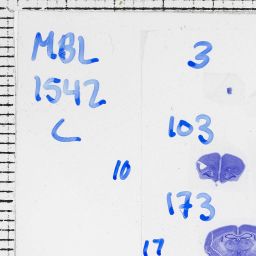 MBL 3
1542
C 103
10
173
17